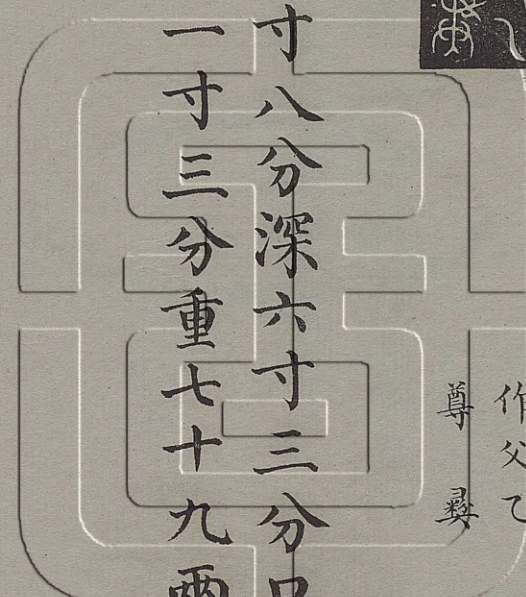 作父乙
尊彝
寸八分深六寸三分口
一寸三分重七十九兩